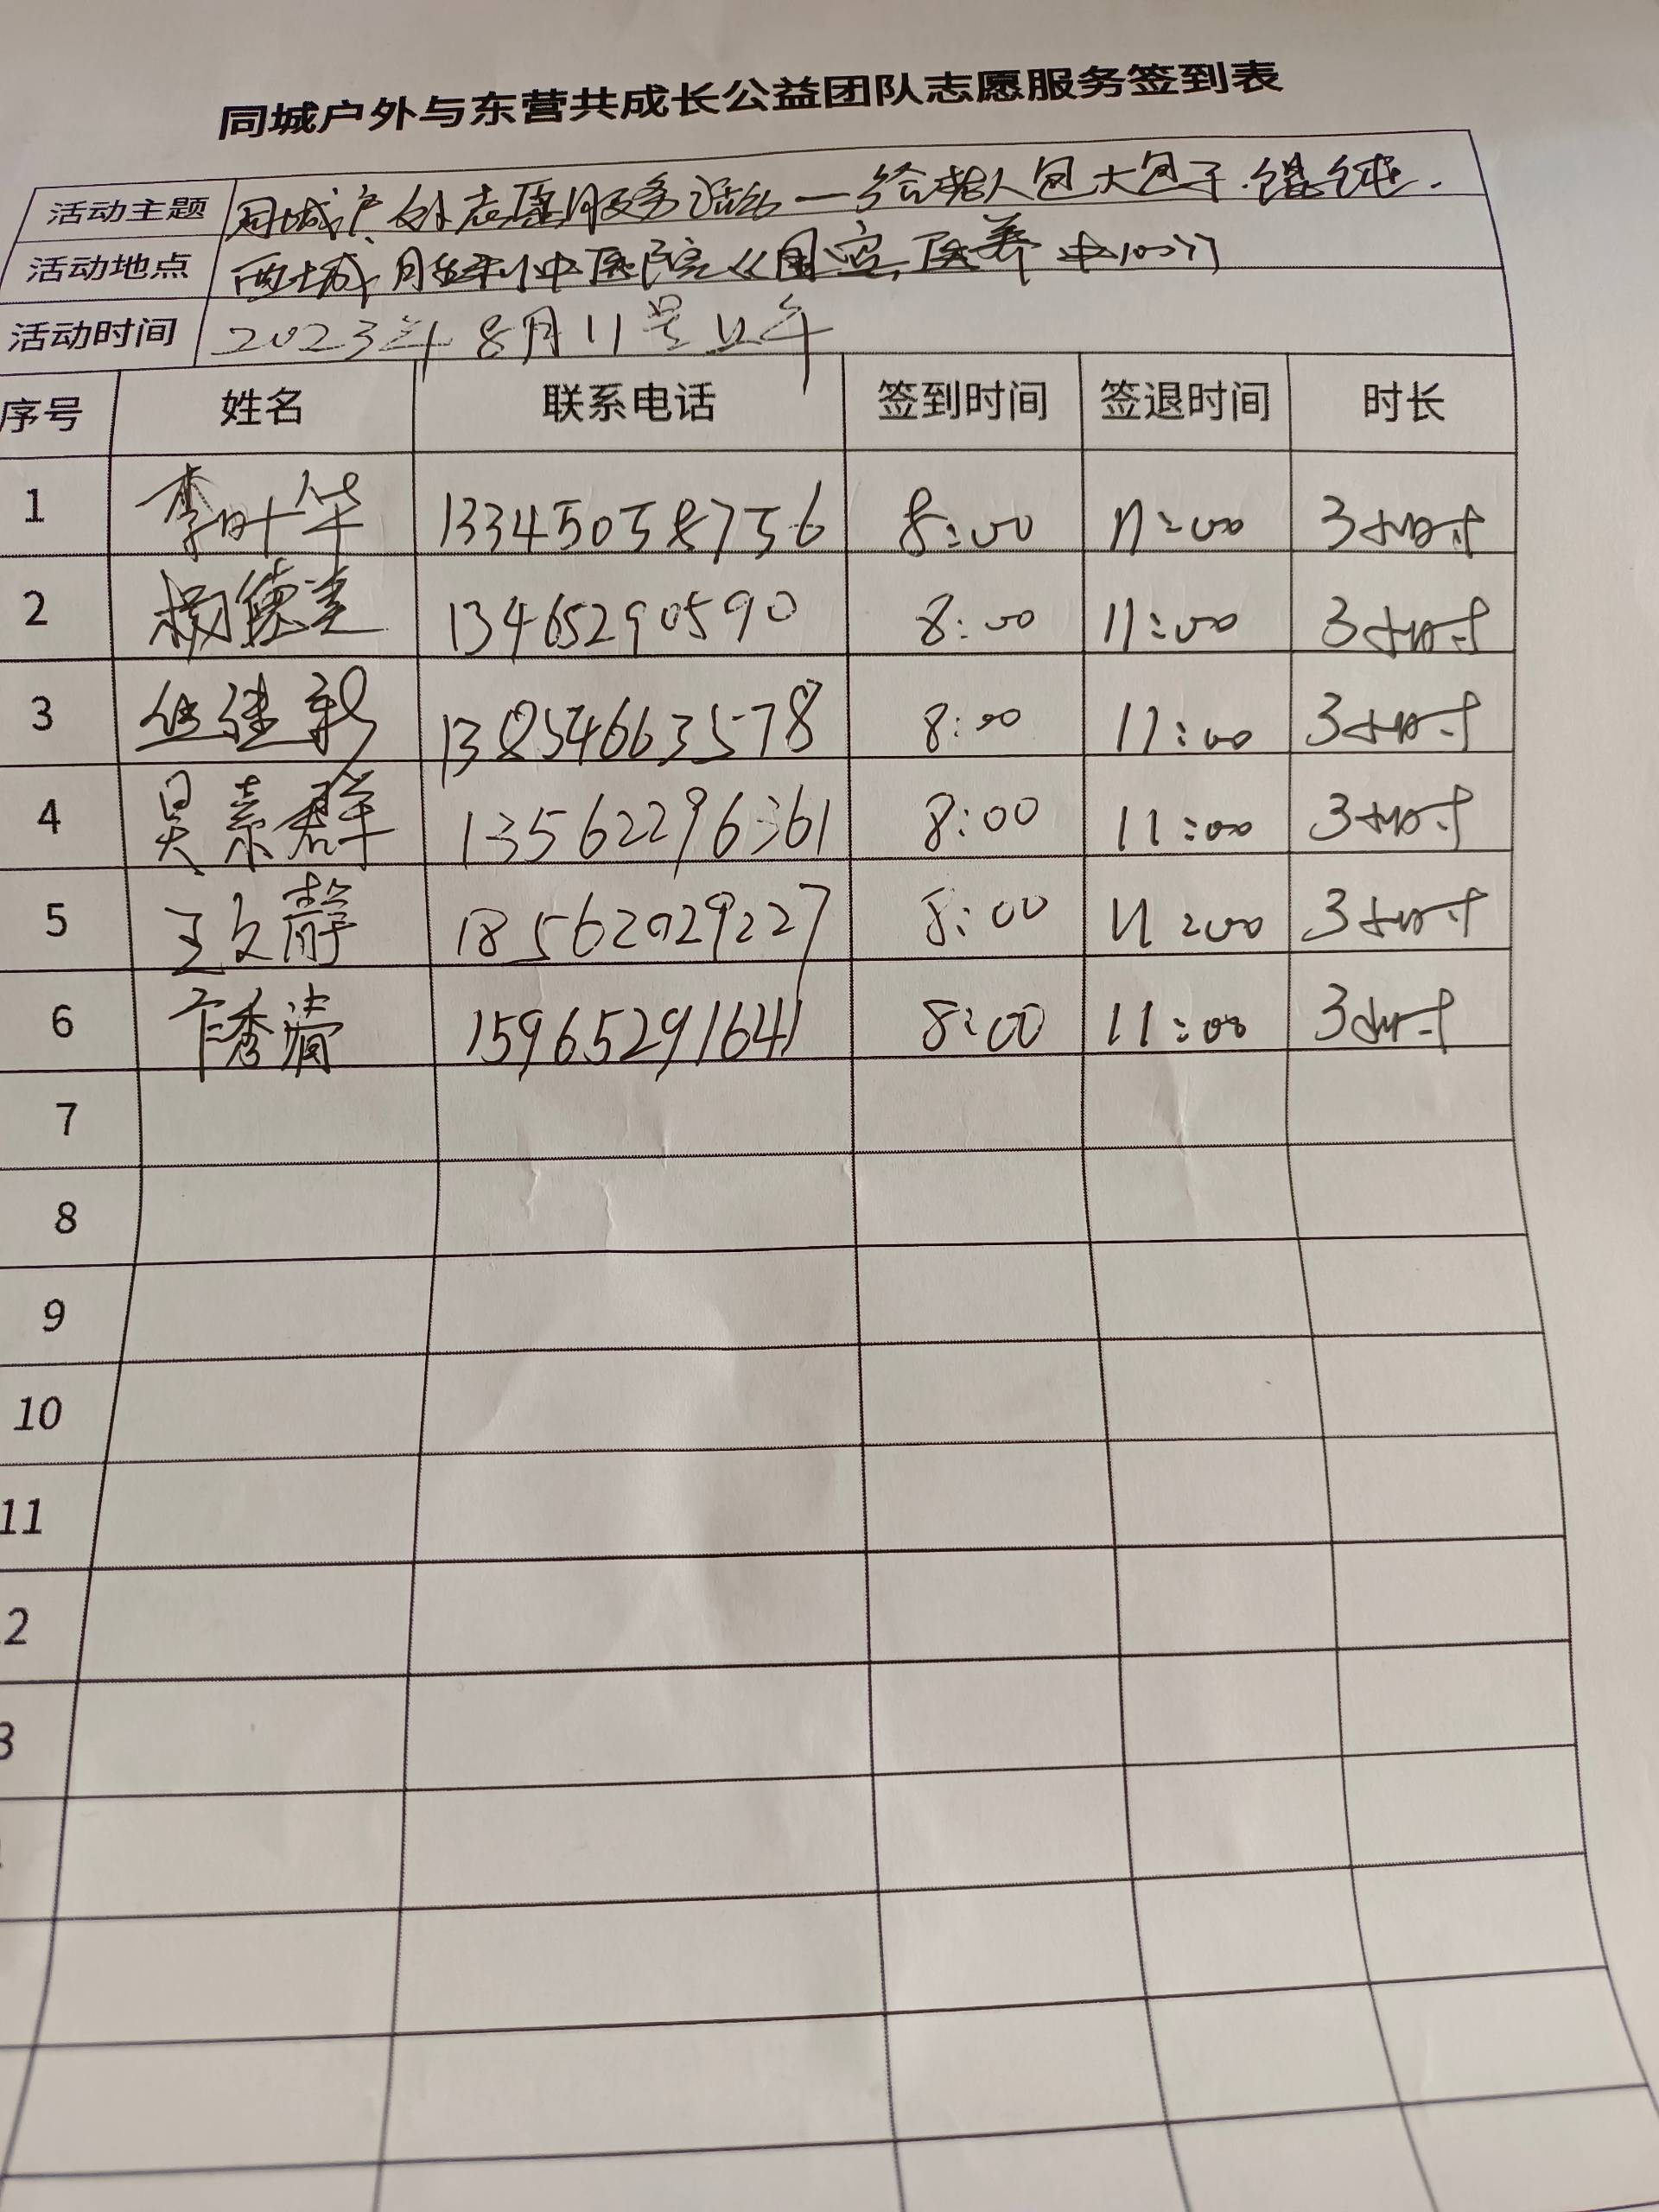 同城户外与东营共成长公益团队志愿服务签到表
活动主题 同城户外志愿服务活动—给老人包大包子.馄饨.
活动地点 西城胜利中医院《国安医养中心》
活动时间 2023年8月11号上午
序号 姓名 联系电话 签到时间 签退时间 时长
1 李叶华 13345058756 8:00 11:00 3小时
2 杨德美 13465290590 8:00 11:00 3小时
3 13854663578 8:00 11:00 3小时
4 吴素群 13562296361 8:00 11:00 3小时
5 王文静 18562029227 8:00 11:00 3小时
6 卞秀清 15965291641 8:00 11:00 3小时
7
8
9
10
11
2
3